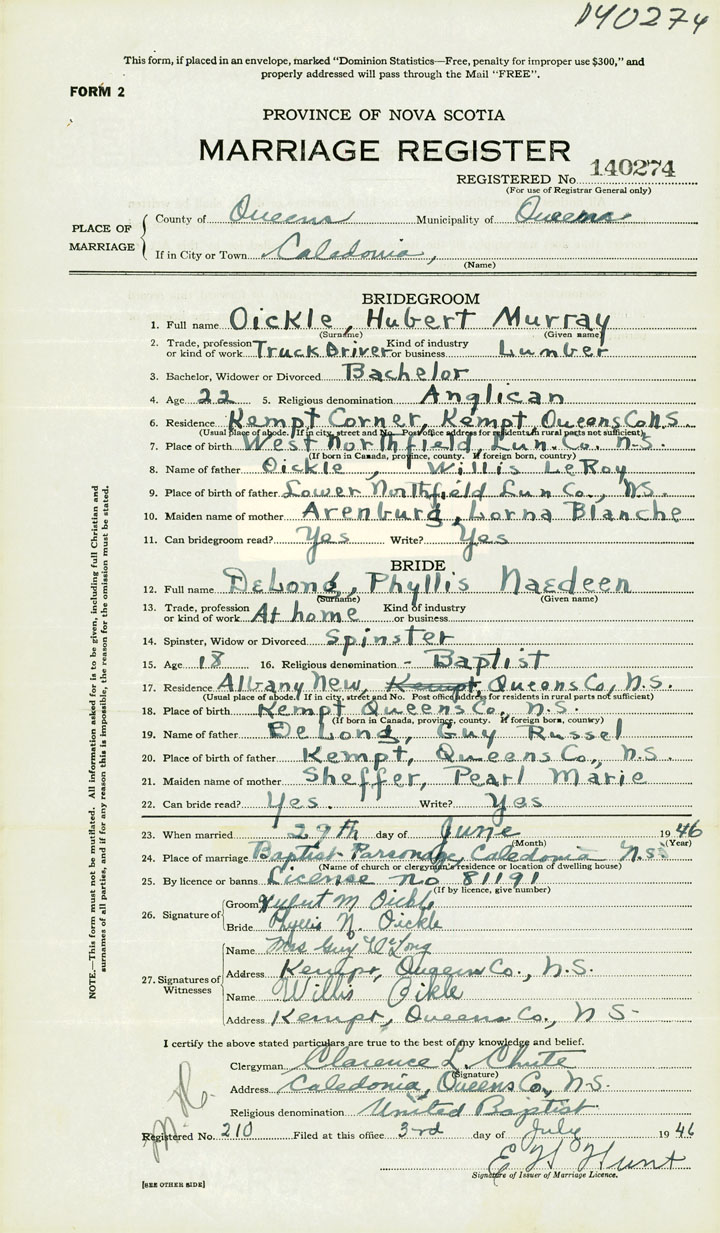 140274
This form, if placed in an envelope, marked "Dominion Statistics—Free, penalty for improper use $300," and
properly addressed will pass through the Mail "FREE".
FORM 2
PROVINCE OF NOVA SCOTIA
MARRIAGE REGISTER
REGISTERED No. 140274
(For use of Registrar General only)
PLACE OF MARRIAGE
County of Queens Municipality of Queens
If in City or Town Caledonia,
(Name)
BRIDEGROOM
1. Full name Oickle, Hubert Murray
(Surname) (Given name)
2. Trade, profession or kind of work Truck Driver Kind of industry or business Lumber
3. Bachelor, Widower or Divorced Bachelor
4. Age 22 5. Religious denomination Anglican
6. Residence Kempt Corner, Kempt Queens Co N.S.
(Usual place of abode. If in city, street and No. Post office address for residents in rural parts not sufficient)
7. Place of birth West Northfield, Lun. Co. N.S.
(If born in Canada, province, county. If foreign born, country)
8. Name of father Oickle, Willis LeRoy
9. Place of birth of father Lower Northfield Lun Co., N.S.
10. Maiden name of mother Arenburg, Lorna Blanche
11. Can bridegroom read? Yes Write? Yes
BRIDE
12. Full name DeLong, Phyllis Naedeen
(Surname) (Given name)
13. Trade, profession or kind of work At home Kind of industry or business
14. Spinster, Widow or Divorced Spinster
15. Age 18 16. Religious denomination - Baptist
17. Residence Albany New, Kempt Queens Co, N.S.
(Usual place of abode. If in city, street and No. Post office address for residents in rural parts not sufficient)
18. Place of birth Kempt Queens Co., N.S.
(If born in Canada, province, county. If foreign born, country)
19. Name of father DeLong, Guy Russel
20. Place of birth of father Kempt, Queens Co., N.S.
21. Maiden name of mother Sheffer, Pearl Marie
22. Can bride read? Yes. Write? Yes
23. When married 29th day of June 1946
(Month) (Year)
24. Place of marriage Baptist Parsonage, Caledonia N.S.
(Name of church or clergyman's residence or location of dwelling house)
25. By licence or banns License no 81191
(If by licence, give number)
26. Signature of
Groom Hubert M Oickle
Bride Phyllis N. Oickle
27. Signatures of Witnesses
Name Mrs Guy DeLong
Address Kempt, Queens Co., N.S.
Name Willis Oikle
Address Kempt, Queens Co., N S-
I certify the above stated particulars are true to the best of my knowledge and belief.
Clergyman Clarence L. Chute
(Signature)
Address Caledonia, Queens Co., N.S.
Religious denomination United Baptist
Registered No. 210 Filed at this office 3rd day of July 1946
E H Hunt
Signature of Issuer of Marriage Licence.
[SEE OTHER SIDE]
NOTE.—This form must not be mutilated. All information asked for is to be given, including full Christian and
surnames of all parties, and if for any reason this is impossible, the reason for the omission must be stated.